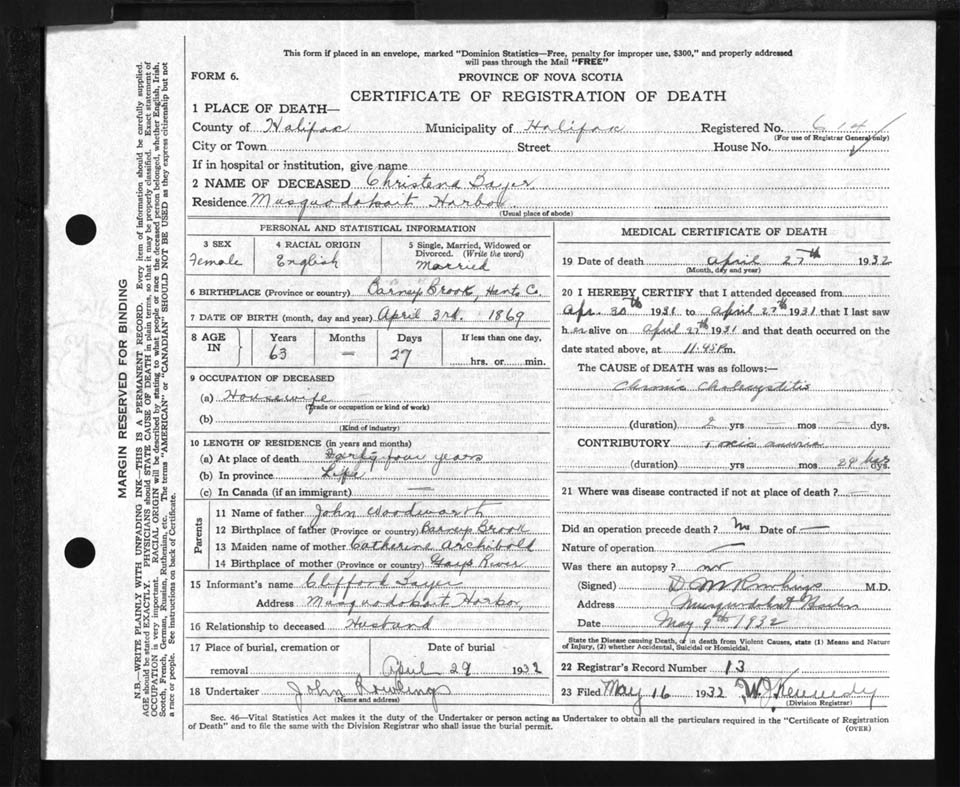 This form if placed in an envelope, marked "Dominion Statistics—Free, penalty for improper use, $300," and properly addressed
will pass through the Mail "FREE"
FORM 6.
PROVINCE OF NOVA SCOTIA
CERTIFICATE OF REGISTRATION OF DEATH
1 PLACE OF DEATH—
County of Halifax Municipality of Halifax Registered No. 614
(For use of Registrar General only)
City or Town Street House No.
If in hospital or institution, give name
2 NAME OF DECEASED Christena Gayer
Residence Musquodoboit Harbor
(Usual place of abode)
PERSONAL AND STATISTICAL INFORMATION
3 SEX 4 RACIAL ORIGIN 5 Single, Married, Widowed or
Divorced. (Write the word)
Female English Married
6 BIRTHPLACE (Province or country) Barney Brook, Hants Co.
7 DATE OF BIRTH (month, day and year) April 3rd. 1869
8 AGE IN Years Months Days If less than one day,
63 — 27 hrs. or min.
9 OCCUPATION OF DECEASED
(a) Housewife
(Trade or occupation or kind of work)
(b)
(Kind of industry)
10 LENGTH OF RESIDENCE (in years and months)
(a) At place of death four years
(b) In province Life
(c) In Canada (if an immigrant) —
Parents
11 Name of father John Woodwarth
12 Birthplace of father (Province or country) Barney Brook
13 Maiden name of mother Catherine Archibold
14 Birthplace of mother (Province or country) Gays River
15 Informant's name Clifford Gayer
Address Musquodoboit Harbor,
16 Relationship to deceased Husband
17 Place of burial, cremation or Date of burial
removal April 29 1932
18 Undertaker John Rowlings
(Name and address)
MEDICAL CERTIFICATE OF DEATH
19 Date of death April 27th 1932
(Month, day and year)
20 I HEREBY CERTIFY that I attended deceased from
Apr. 30th 1931 to April 27th 1931 that I last saw
her alive on April 27th 1931 and that death occurred on the
date stated above, at 11.45 P.m.
The CAUSE of DEATH was as follows:—
Chronic Cholecystitis
(duration) 2 yrs — mos — dys.
CONTRIBUTORY Toxic
(duration) yrs mos 24 dys.
21 Where was disease contracted if not at place of death? —
Did an operation precede death? No Date of —
Nature of operation —
Was there an autopsy? no
(Signed) D M Rowlings M.D.
Address Musquodoboit
Date May 9th 1932
State the Disease causing Death, or in death from Violent Causes, state (1) Means and Nature
of Injury, (2) whether Accidental, Suicidal or Homicidal.
22 Registrar's Record Number 13
23 Filed May 16 1932 W J Kennedy
(Division Registrar)
Sec. 46—Vital Statistics Act makes it the duty of the Undertaker or person acting as Undertaker to obtain all the particulars required in the "Certificate of Registration
of Death" and to file the same with the Division Registrar who shall issue the burial permit.
(OVER)
MARGIN RESERVED FOR BINDING
N.B.—WRITE PLAINLY WITH UNFADING INK—THIS IS A PERMANENT RECORD. Every item of information should be carefully supplied.
AGE should be stated EXACTLY. PHYSICIANS should STATE CAUSE OF DEATH in plain terms, so that it may be properly classified. Exact statement of
OCCUPATION is very important. RACIAL ORIGIN will be described by stating to what people or race the deceased person belonged, whether English, Irish,
Scotch, French, German, Russian, Ruthenian, etc. The terms "AMERICAN" or "CANADIAN" SHOULD NOT BE USED as they express citizenship but not
a race or people. See instructions on back of Certificate.